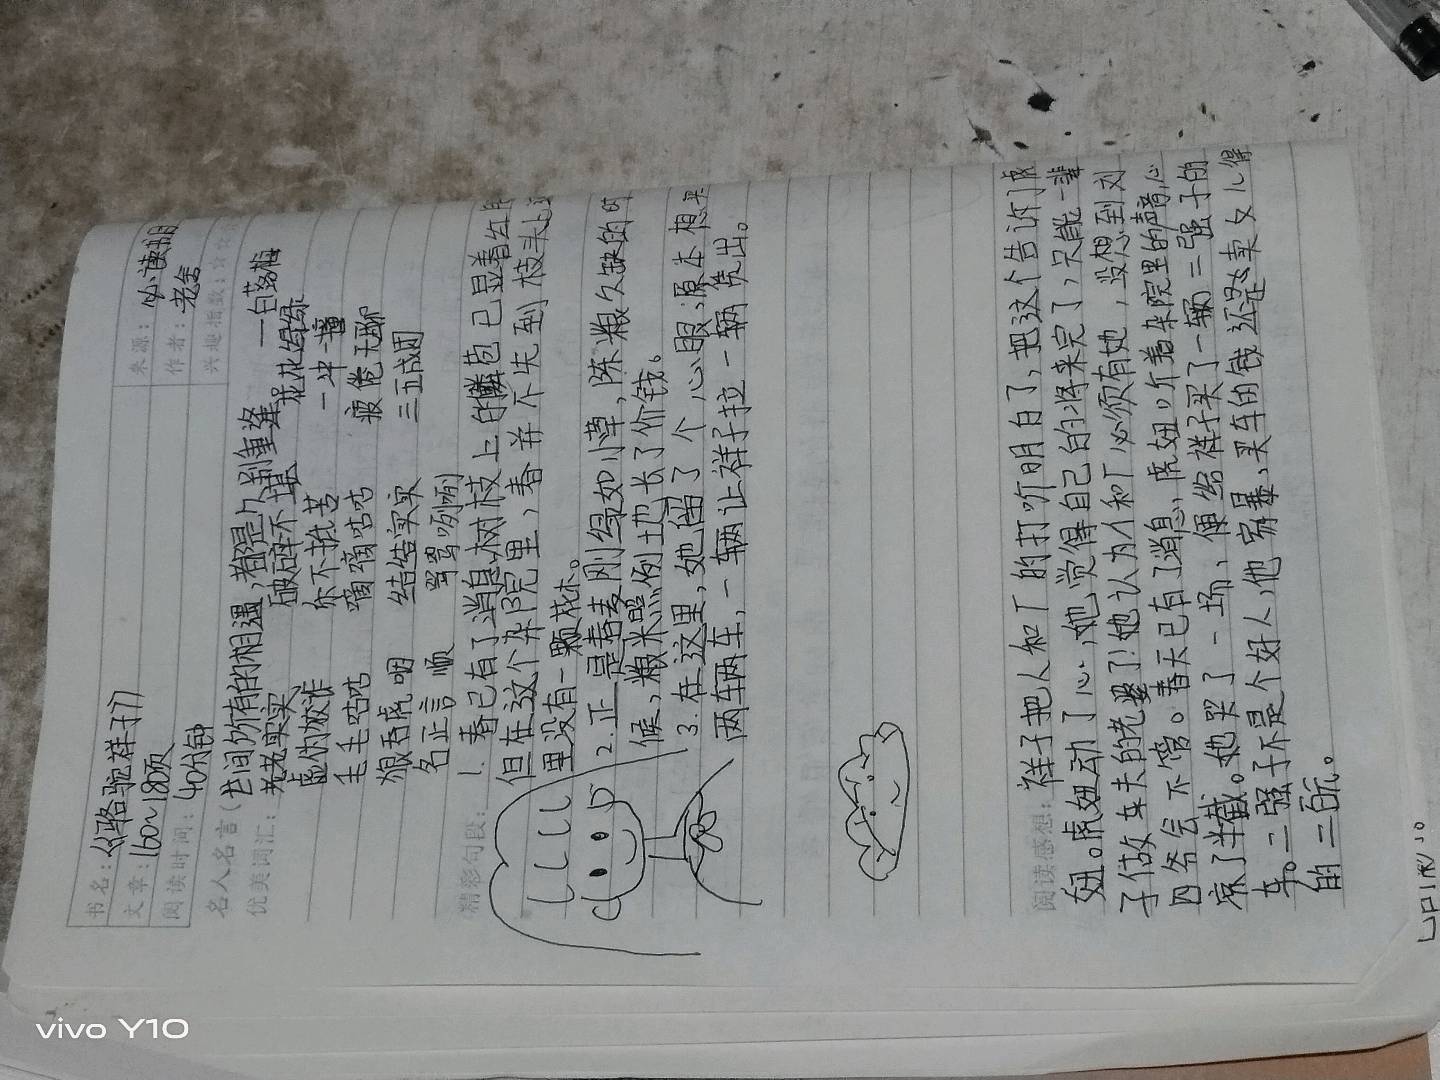 书名：《骆驼祥子》 来源：必读书目
文章：160~180页 作者：老舍
阅读时间：40分钟 兴趣指数：
名人名言（世间所有的相遇，都是久别重逢 —白落梅
优美词汇：老老实实 破碎不堪 花花绿绿
虚伪做作 你不抵苦 一冲一撞
毛毛咕咕 嘀嘀咕咕 疲倦无聊
狼吞虎咽 结结实实 三五成团
名正言顺 骂骂咧咧
精彩句段：1. 春已有了消息，树枝上的鳞苞已显着红
但在这个杂院里，春并不先到枝头上
里没有一颗花木。
2. 正是春麦刚绿如小草，陈粮久缺的时
候，粮米照例地长了价钱。
3. 在这里，她留了个心眼；原本想买
两车两车，一辆让祥子拉一辆凭出。
阅读感想：祥子把人和厂的打听明白了，把这个告诉虎
妞。虎妞动了心，她觉得自己的将来完了，只能一辈
子做车夫的老婆了！她认为人和厂必须有她，没想到刘
四爷会不管。春天已有了消息，虎妞听着杂院里的声音，心
凉了半截。她哭了一场，便给祥子买了一辆二强子的
车。二强子不是个好人，他家暴，买车的钱还是卖女儿得
的二百元。
vivo Y10